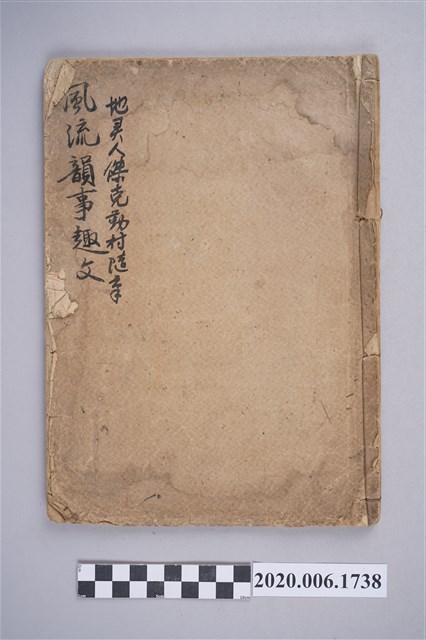 地灵人傑克勤村隨
風流韻事趣文
2020.006.1738